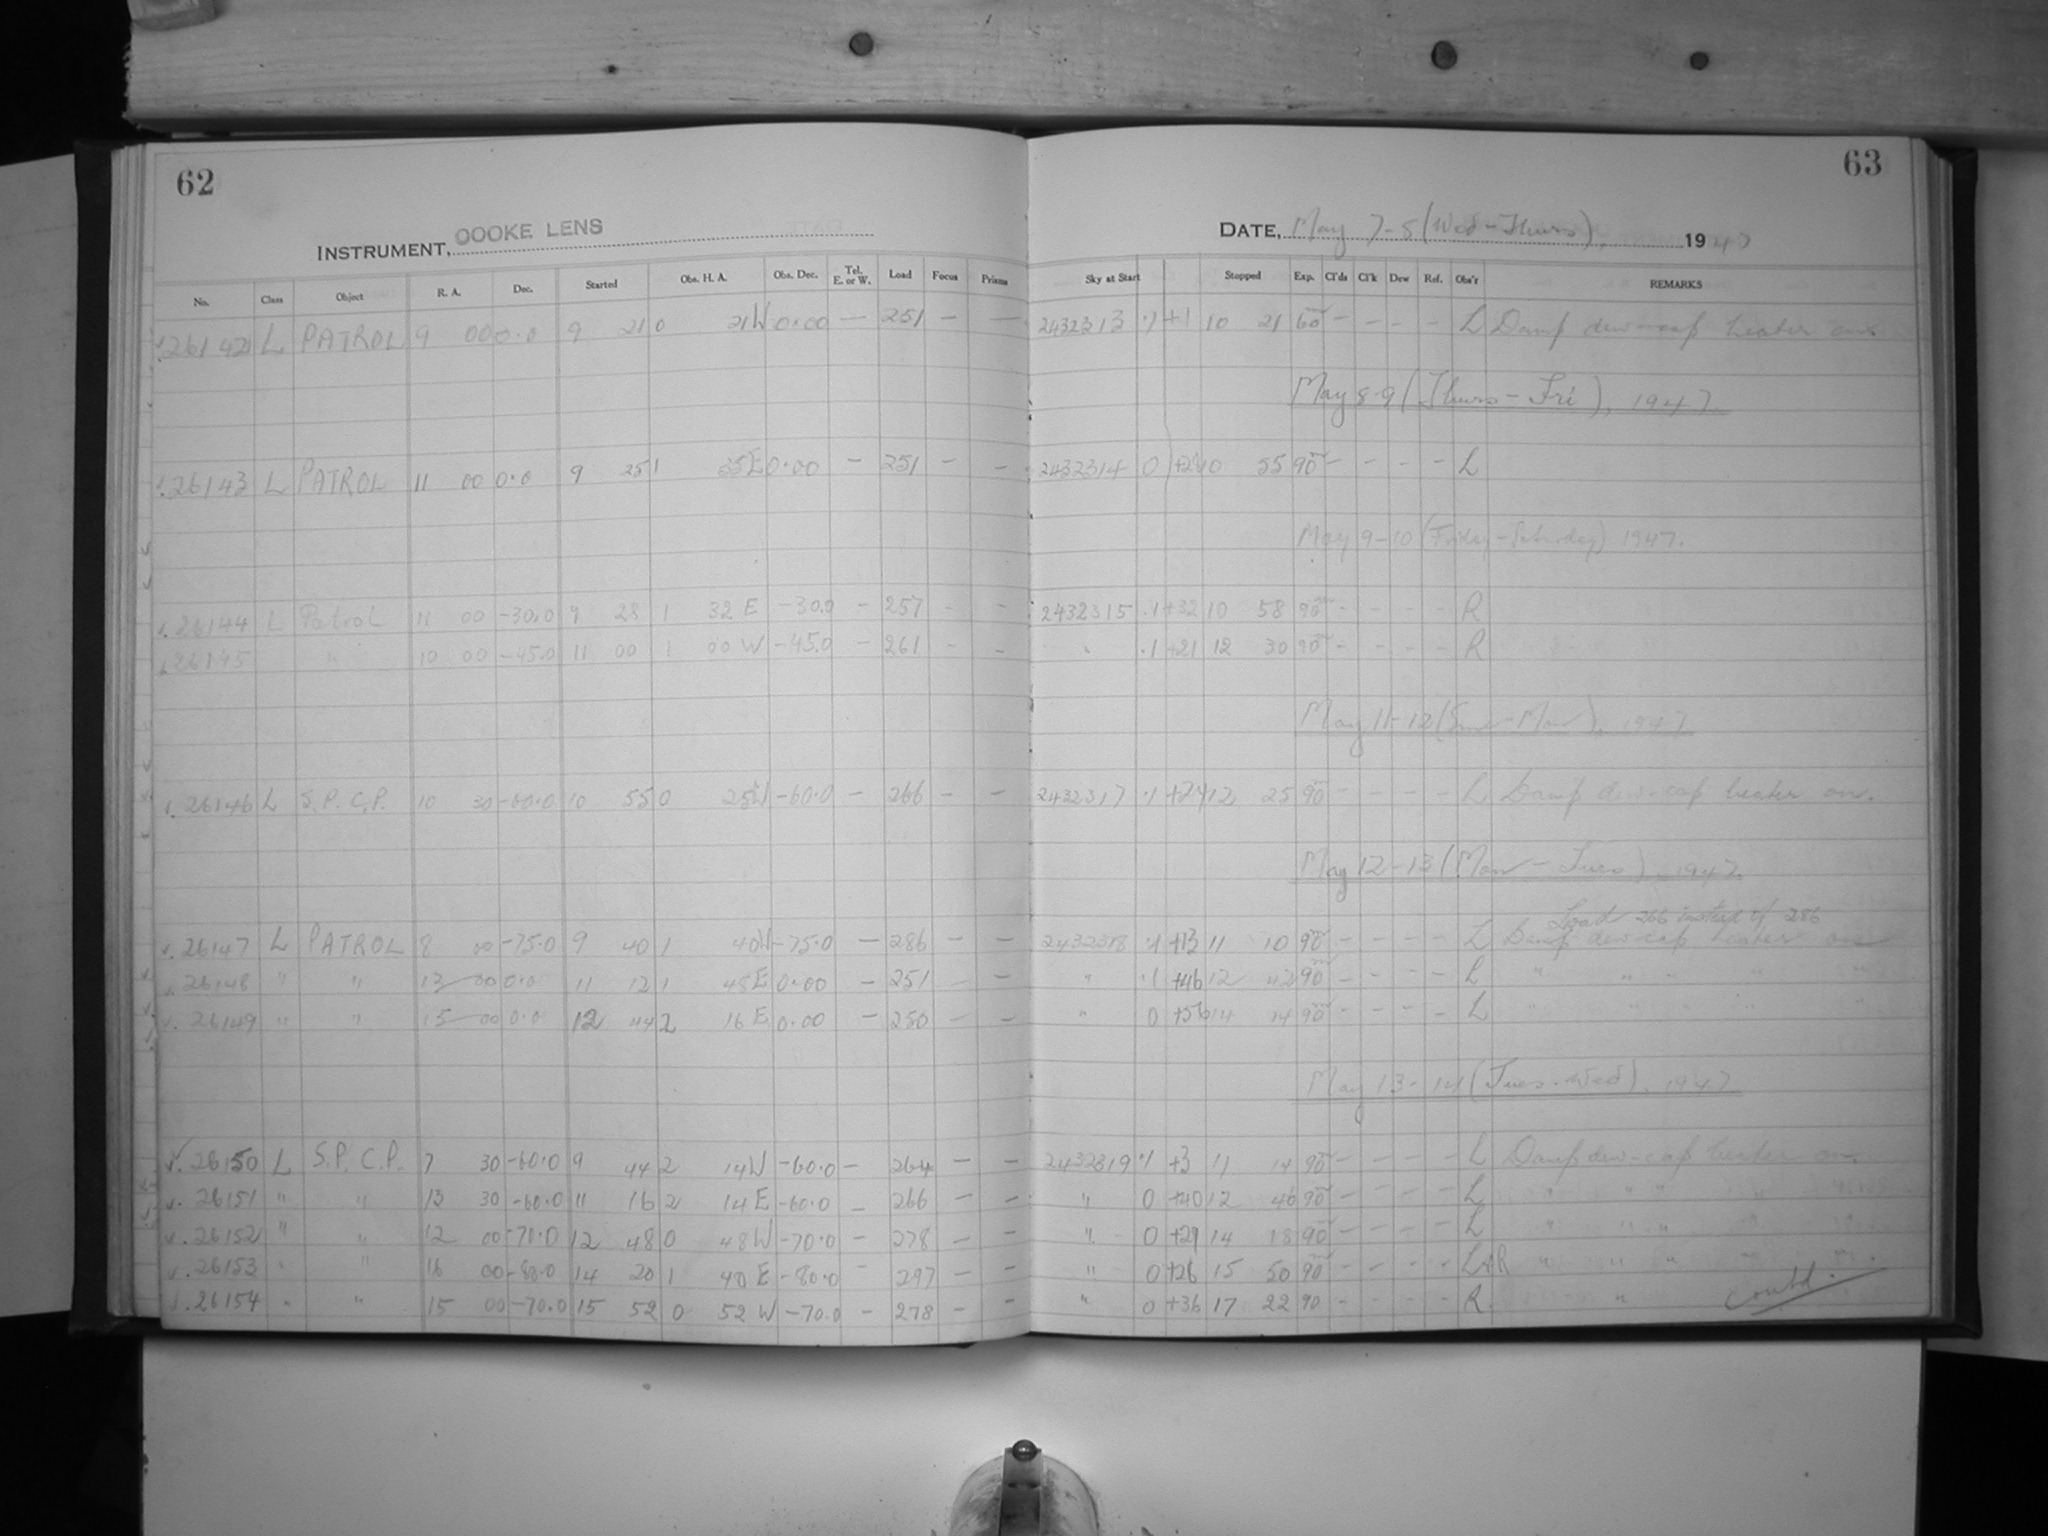 62
INSTRUMENT, COOKE LENS
No. Class Object R. A. Dec. Started Obs. H. A. Obs. Dec. Tel. E. or W. Load Focus Prisms
26142 L PATROL 9 00 0.0 9 21 0 21W 0.00 — 251 — —
26143 L PATROL 11 00 0.0 9 25 1 35E 0.00 — 251 — —
26144 L Patrol 11 00 -30.0 9 28 1 32 E -30.0 - 257 - -
26145 " 10 00 -45.0 11 00 1 00 W -45.0 - 261 - -
26146 L S.P.C.P. 10 30 -60.0 10 55 0 25W -60.0 — 266 — —
26147 L PATROL 8 00 -75.0 9 40 1 40W -75.0 — 286 — —
26148 " " 13 00 0.0 11 12 1 45E 0.00 — 251 — —
26149 " " 15 00 0.0 12 44 2 16 E 0.00 — 250 — —
26150 L S.P. C.P. 7 30 -60.0 9 44 2 14W -60.0 — 264 — —
26151 " " 13 30 -60.0 11 16 2 14 E -60.0 — 266 — —
26152 " " 12 00 -70.0 12 48 0 48W -70.0 — 278 — —
26153 " " 16 00 -80.0 14 20 1 40 E -80.0 - 297 — —
26154 " " 15 00 -70.0 15 52 0 52 W -70.0 - 278 — —
63
DATE, May 7-8 (Wed-Thurs), 1947
Sky at Start Stopped Exp. Cl'ds Cl'k Dew Ref. Obs'r REMARKS
2432313 .1 +1 10 21 60 — — — — L Damp dew-cap heater on.
May 8-9 (Thurs-Fri), 1947.
2432314 0 10 55 90 — — — — L
May 9-10 (Friday-Saturday) 1947.
2432315 .1 +32 10 58 90 - - - - R
" .1 +21 12 30 90 - - - - R
May 11-12 (Sun-Mon), 1947
2432317 .1 +24 12 25 90 - - - - L Damp dew-cap heater on.
May 12-13 (Mon-Tues), 1947.
Load 266 instead of 286
2432318 .1 +13 11 10 90 — — — — L Damp dew-cap heater on
" .1 +46 12 42 90 — — — — L " " " "
" 0 +56 14 14 90 — — — — L " " " "
May 13-14 (Tues-Wed), 1947
2432319 .1 +3 11 14 90 — — — — L Damp dew-cap heater on.
" 0 +40 12 46 90 — — — — L
" 0 +29 14 18 90 — — — — L " " "
" 0 +26 15 50 90 — — — — L&R " " "
" 0 +36 17 22 90 - - - - R
contd.